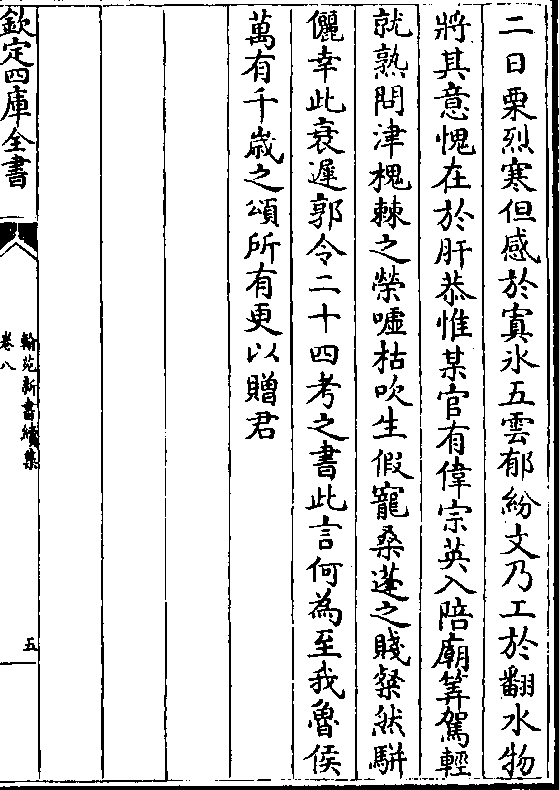 二日栗烈寒但感於寘氷五雲郁紛文乃工於翻水物
將其意愧在於肝恭惟某官有偉宗英入陪廟筭駕輕
就熟問津槐棘之榮噓枯吹生假寵桑蓬之賤粲然駢
儷幸此衰遲郭令二十四考之書此言何為至我魯侯
萬有千歲之頌所有更以贈君
欽定四庫全書
翰苑新書續集
卷八
五